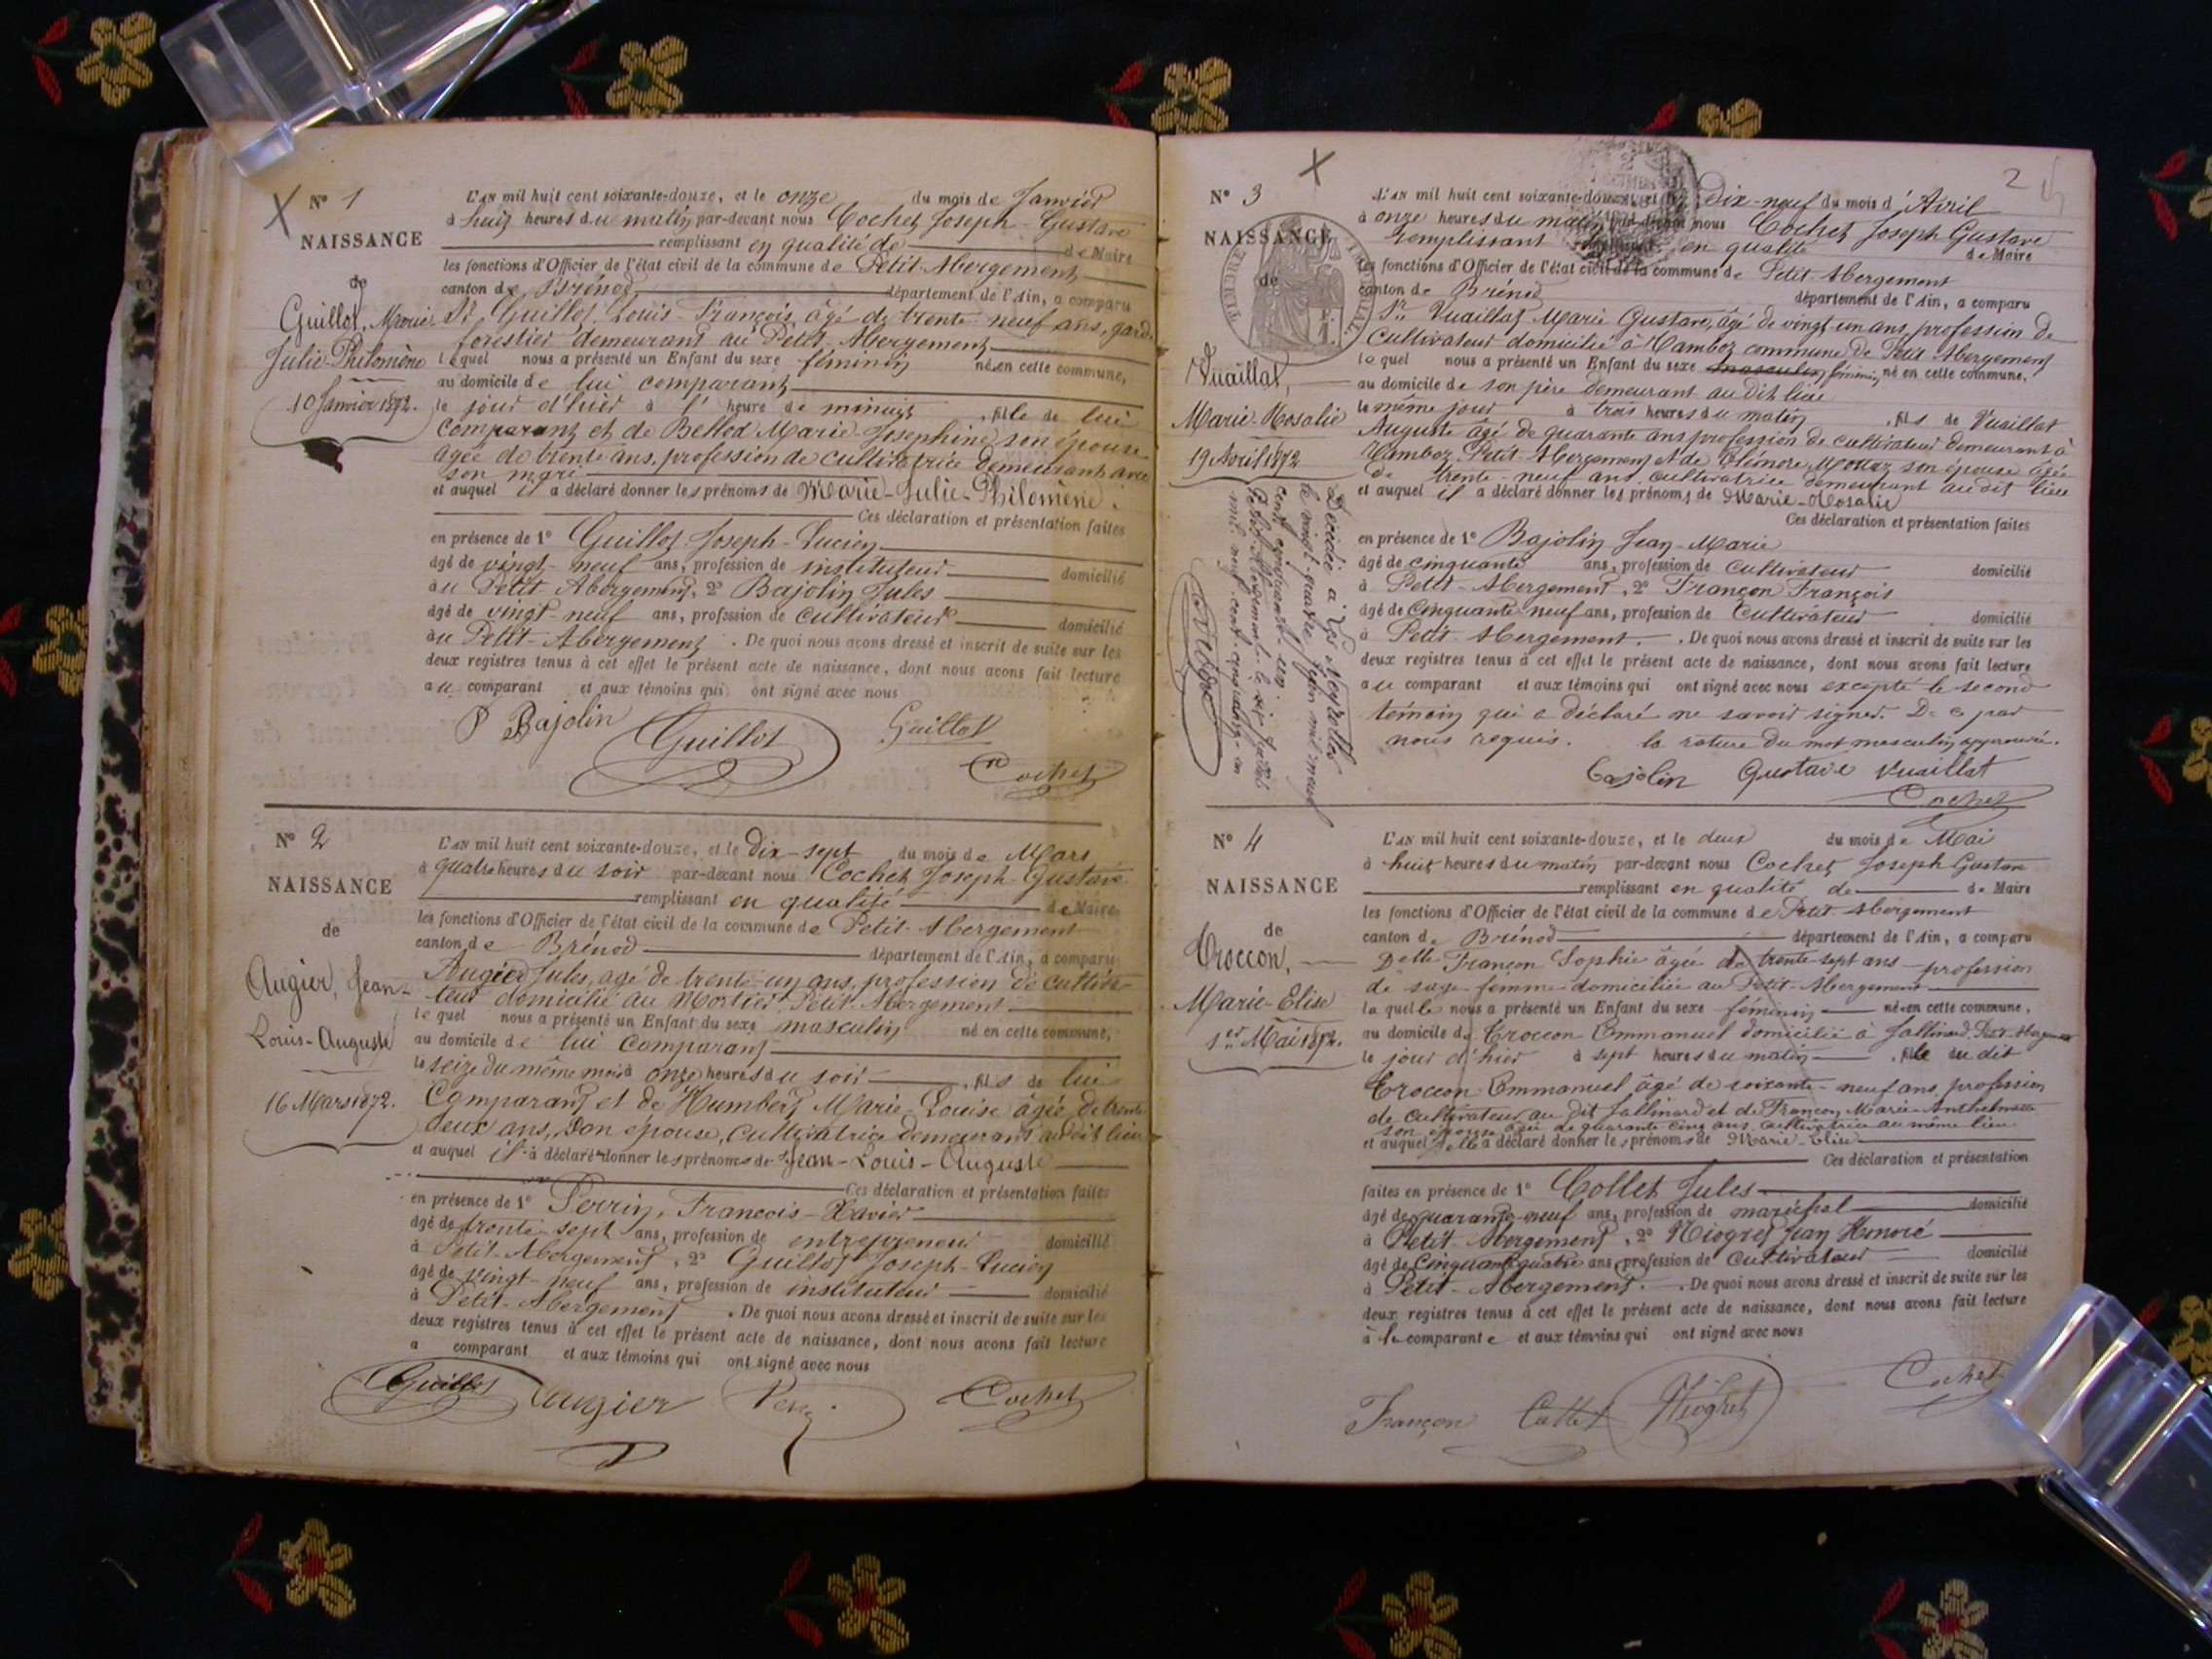 N° 1
NAISSANCE
de
Guillot, Marie
Julie-Philomène
10 Janvier 1872.
L'AN mil huit cent soixante-douze, et le onze du mois de Janvier
à huit heures du matin par-devant nous Cochet Joseph-Gustave
remplissant en qualité de de Maire
les fonctions d'Officier de l'état civil de la commune de Petit-Abergement
canton de Brénod département de l'Ain, a comparu
Sr Guillot Louis-François, âgé de trente-neuf ans, garde
forestier demeurant au Petit-Abergement
lequel nous a présenté un Enfant du sexe féminin né en cette commune,
au domicile de lui comparant
le jour d'hier à l' heure de minuit , fille de lui
comparant et de Marie-Josephine son épouse
agée de trente ans, profession de cultivatrice demeurant avec
son mari
et auquel il a déclaré donner les prénoms de Marie-Julie-Philomène.
Ces déclaration et présentation faites
en présence de 1° Guillot Joseph-Lucien
âgé de vingt-neuf ans, profession de instituteur domicilié
au Petit Abergement, 2° Bajolin Jules
âgé de vingt-neuf ans, profession de cultivateur domicilié
au Petit-Abergement . De quoi nous avons dressé et inscrit de suite sur les
deux registres tenus à cet effet le présent acte de naissance, dont nous avons fait lecture
au comparant et aux témoins qui ont signé avec nous
Bajolin Guillot Guillot
Cochet
N° 2
NAISSANCE
de
Augier, Jean-
Louis-Auguste
16 Mars 1872.
L'AN mil huit cent soixante-douze, et le dix-sept du mois de Mars
à quatre heures du soir par-devant nous Cochet Joseph Gustave
remplissant en qualité de Maire
les fonctions d'Officier de l'état civil de la commune de Petit-Abergement
canton de Brénod département de l'Ain, a comparu
Augier Jules, agé de trente-un ans, profession de cultiva-
teur domicilié au Mortier Petit-Abergement
lequel nous a présenté un Enfant du sexe masculin né en cette commune,
au domicile de lui comparant
le seize du même mois à onze heures du soir , fils de lui
Comparant et de Humbert Marie-Louise âgée de trente
deux ans, son épouse, cultivatrice demeurant audit lieu
et auquel il a déclaré donner les prénoms de Jean-Louis-Auguste
Ces déclaration et présentation faites
en présence de 1° Perrin, Francois-Xavier
âgé de trente-sept ans, profession de entrepreneur domicilié
à Petit-Abergement, 2° Guillot Joseph-Lucien
âgé de vingt-neuf ans, profession de instituteur domicilié
à Petit-Abergement . De quoi nous avons dressé et inscrit de suite sur les
deux registres tenus à cet effet le présent acte de naissance, dont nous avons fait lecture
a comparant et aux témoins qui ont signé avec nous
Guillot Augier Cochet
2
N° 3
NAISSANCE
de
TIMBRE IMPERIAL
Vuaillat,
Marie-Rosalie
19 Avril 1872
Décédé à
le vingt-quatre juin mil neuf
cent cinquante-un
Petit Abergement, le six juillet
mil neuf cent cinquante-un
L'AN mil huit cent soixante-douze, et le dix-neuf du mois d'Avril
à onze heures du matin par-devant nous Cochet Joseph Gustave
remplissant en qualité de Maire
les fonctions d'Officier de l'état civil de la commune de Petit Abergement
canton de Brénod département de l'Ain, a comparu
Sr Vuaillat Marie Gustave, âgé de vingt-un ans, profession de
cultivateur domicilié à commune de Petit-Abergement
lequel nous a présenté un Enfant du sexe masculin féminin né en cette commune,
au domicile de son père demeurant au dit lieu
le même jour à trois heures du matin , fils de Vuaillat
Auguste âgé de quarante ans profession de cultivateur demeurant à
Petit-Abergement et de son épouse âgée
de trente-neuf ans cultivatrice demeurant au dit lieu
et auquel il a déclaré donner les prénoms de Marie-Rosalie
Ces déclaration et présentation faites
en présence de 1° Bajolin Jean-Marie
âgé de cinquante ans, profession de cultivateur domicilié
à Petit-Abergement, 2° Françon François
âgé de cinquante neuf ans, profession de Cultivateur domicilié
à Petit-Abergement. . De quoi nous avons dressé et inscrit de suite sur les
deux registres tenus à cet effet le présent acte de naissance, dont nous avons fait lecture
au comparant et aux témoins qui ont signé avec nous excepté le second
témoin qui a déclaré ne savoir signer. De ce par
nous requis. la rature du mot masculin approuvée.
Bajolin Gustave Vuaillat
Cochet
N° 4
NAISSANCE
de
Troccon,
Marie-Elise
1er Mai 1872.
L'AN mil huit cent soixante-douze, et le deux du mois de Mai
à huit heures du matin par-devant nous Cochet Joseph Gustave
remplissant en qualité de de Maire
les fonctions d'Officier de l'état civil de la commune de Petit Abergement
canton de Brénod département de l'Ain, a comparu
Delle Françon Sophie âgée de trente-sept ans profession
de sage-femme domiciliée au Petit-Abergement
laquelle nous a présenté un Enfant du sexe féminin né en cette commune,
au domicile de Troccon Emmanuel domicilié à Jallinard Petit-Abergement
le jour d'hier à sept heures du matin , fille du dit
Troccon Emmanuel âgé de soixante-neuf ans, profession
de cultivateur au dit Jallinard et de Françon Marie-Anthelmette
son épouse âgée de quarante cinq ans cultivatrice au même lieu
et auquel elle a déclaré donner les prénoms de Marie-Elise
Ces déclaration et présentation
faites en présence de 1° Collet Jules
âgé de quarante-neuf ans, profession de maréchal domicilié
à Petit-Abergement, 2° Niogret Jean Honoré
âgé de cinquante quatre ans, profession de cultivateur domicilié
à Petit-Abergement. . De quoi nous avons dressé et inscrit de suite sur les
deux registres tenus à cet effet le présent acte de naissance, dont nous avons fait lecture
à la comparante et aux témoins qui ont signé avec nous
Françon Collet Niogret Cochet